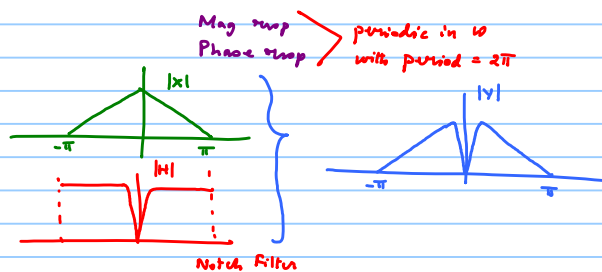 Mag resp
Phase resp
periodic in ω
with period = 2π
|X|
-π π
|H|
Notch Filter
|Y|
-π π